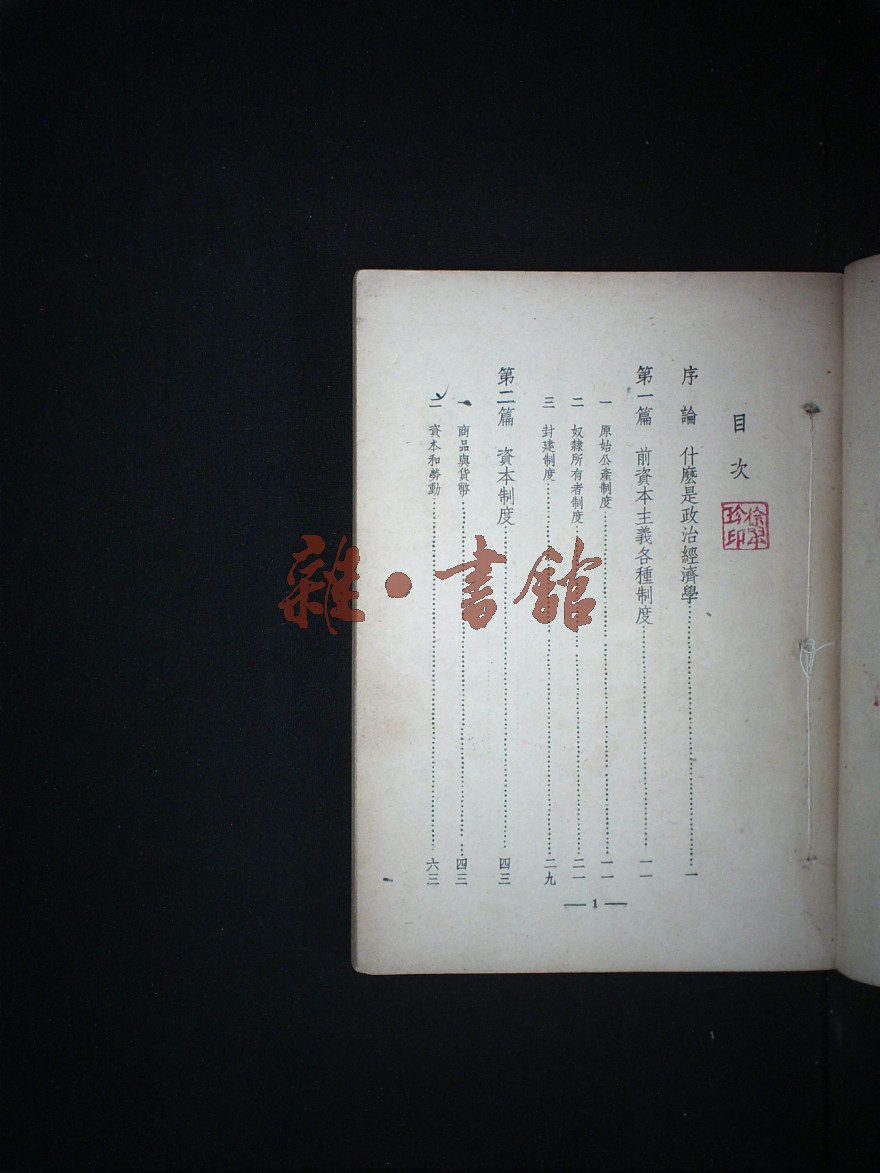 目次
序論 什麼是政治經濟學……一
第一篇 前資本主義各種制度……一一
一 原始公產制度……一一
二 奴隸所有者制度……二一
三 封建制度……二九
第二篇 資本制度……四三
一 商品與貨幣……四三
二 資本和勞動……六三
— 1 —
雜·書館